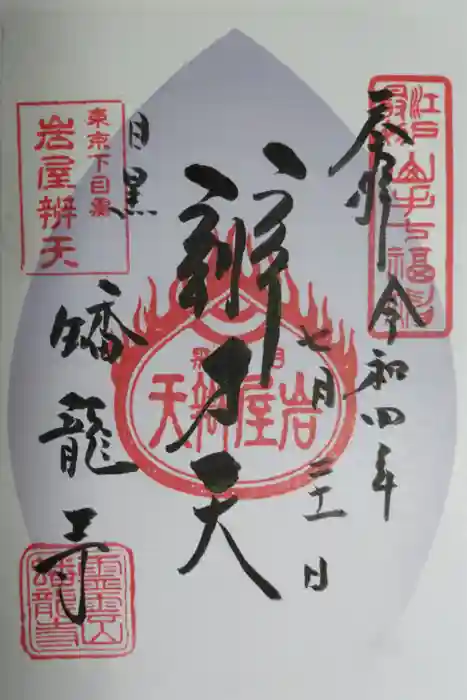 江戸最初
山手七福神
奉拝 令和四年
七月二十一日
辨才天
目黒
岩屋辨天
目黒
蟠龍寺
東京下目黒
岩屋辨天
靈雲山
蟠龍寺